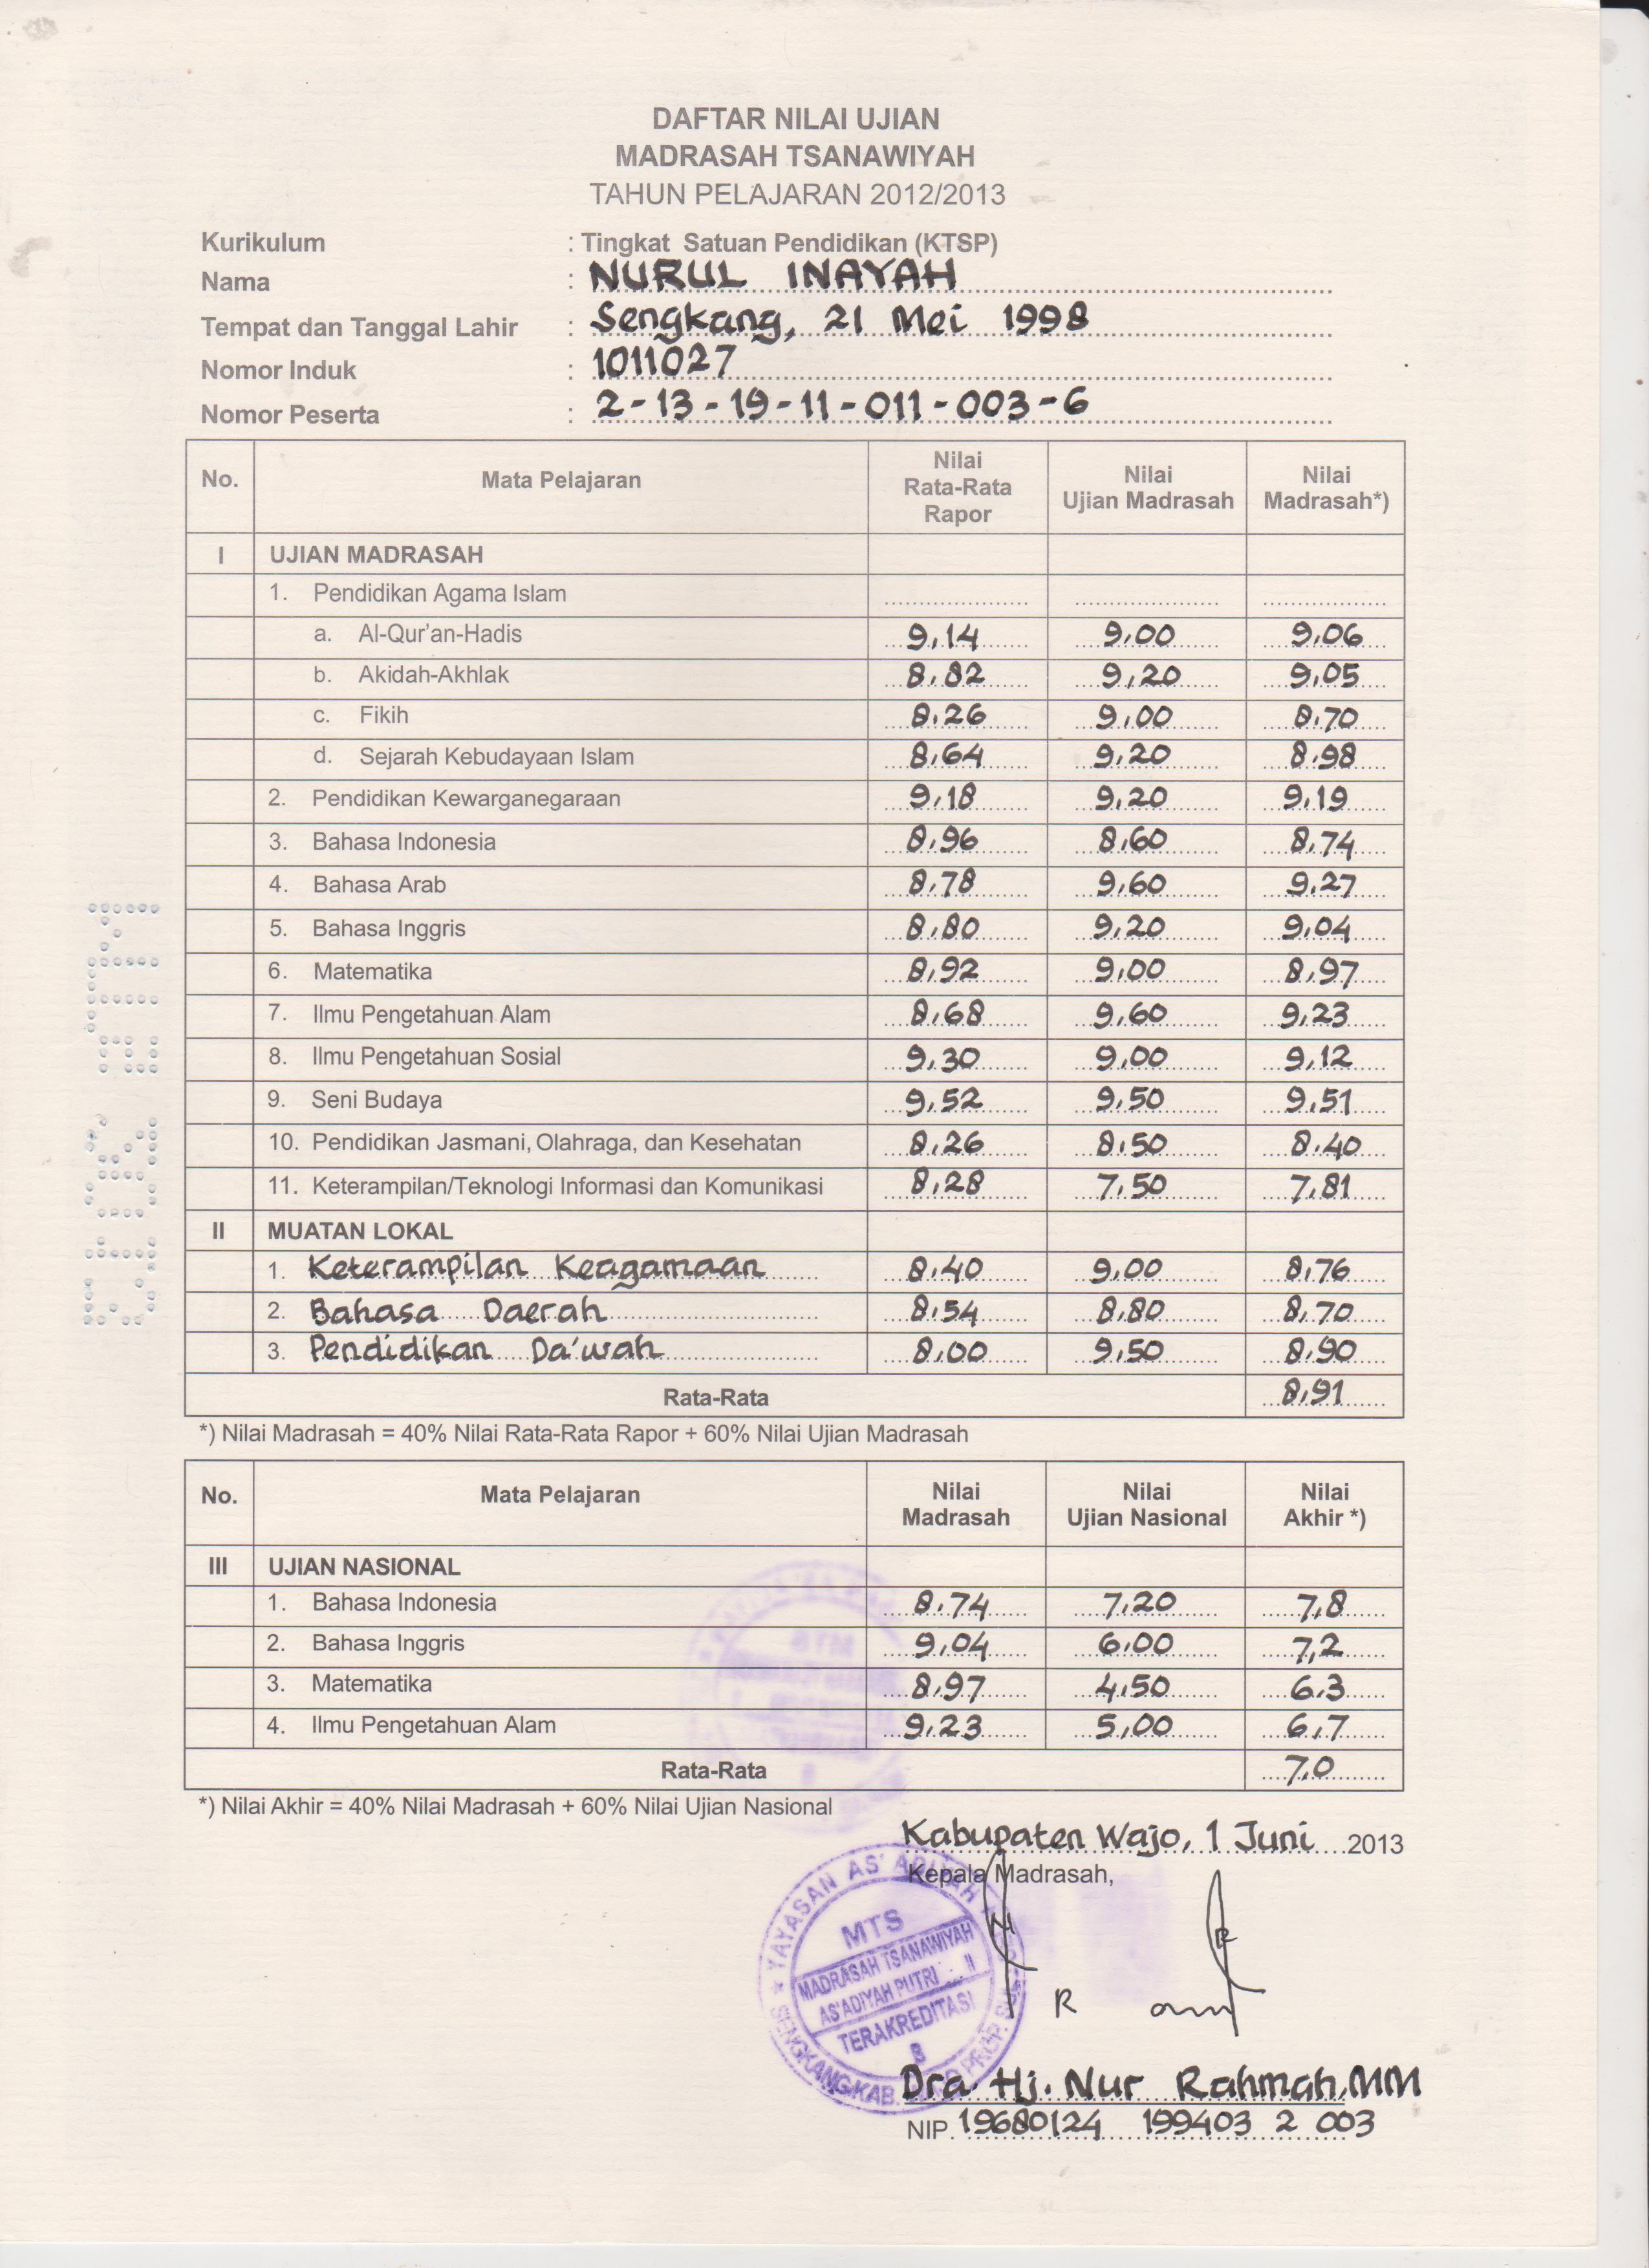 DAFTAR NILAI UJIAN
MADRASAH TSANAWIYAH
TAHUN PELAJARAN 2012/2013
Kurikulum : Tingkat Satuan Pendidikan (KTSP)
Nama : NURUL INAYAH
Tempat dan Tanggal Lahir : Sengkang, 21 Mei 1998
Nomor Induk : 1011027
Nomor Peserta : 2-13-19-11-011-003-6
No. Mata Pelajaran Nilai Rata-Rata Rapor Nilai Ujian Madrasah Nilai Madrasah*)
I UJIAN MADRASAH
1. Pendidikan Agama Islam
a. Al-Qur'an-Hadis 9,14 9,00 9,06
b. Akidah-Akhlak 8,82 9,20 9,05
c. Fikih 8,26 9,00 8,70
d. Sejarah Kebudayaan Islam 8,64 9,20 8,98
2. Pendidikan Kewarganegaraan 9,18 9,20 9,19
3. Bahasa Indonesia 8,96 8,60 8,74
4. Bahasa Arab 8,78 9,60 9,27
5. Bahasa Inggris 8,80 9,20 9,04
6. Matematika 8,92 9,00 8,97
7. Ilmu Pengetahuan Alam 8,68 9,60 9,23
8. Ilmu Pengetahuan Sosial 9,30 9,00 9,12
9. Seni Budaya 9,52 9,50 9,51
10. Pendidikan Jasmani, Olahraga, dan Kesehatan 8,26 8,50 8,40
11. Keterampilan/Teknologi Informasi dan Komunikasi 8,28 7,50 7,81
II MUATAN LOKAL
1. Keterampilan Keagamaan 8,40 9,00 8,76
2. Bahasa Daerah 8,54 8,80 8,70
3. Pendidikan Da'wah 8,00 9,50 8,90
Rata-Rata 8,91
*) Nilai Madrasah = 40% Nilai Rata-Rata Rapor + 60% Nilai Ujian Madrasah
No. Mata Pelajaran Nilai Madrasah Nilai Ujian Nasional Nilai Akhir *)
III UJIAN NASIONAL
1. Bahasa Indonesia 8,74 7,20 7,8
2. Bahasa Inggris 9,04 6,00 7,2
3. Matematika 8,97 4,50 6,3
4. Ilmu Pengetahuan Alam 9,23 5,00 6,7
Rata-Rata 7,0
*) Nilai Akhir = 40% Nilai Madrasah + 60% Nilai Ujian Nasional
Kabupaten Wajo, 1 Juni 2013
Kepala Madrasah,
YAYASAN AS'ADIYAH
MTS
MADRASAH TSANAWIYAH
AS'ADIYAH PUTRI II
TERAKREDITASI
B
SENGKANG KAB.
Dra. Hj. Nur Rahmah, MM
NIP. 19680124 199403 2 003